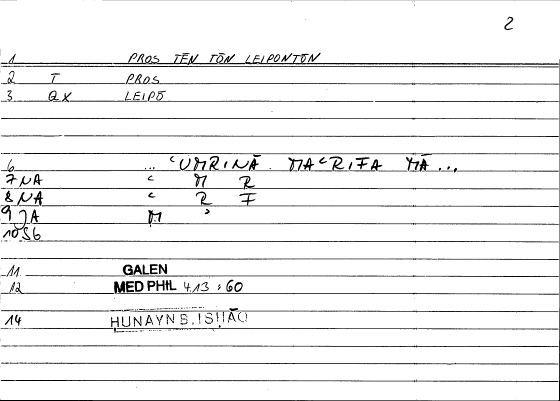 2
1 PROS TĒN TŌN LEIPONTŌN
2 T PROS
3 QX LEIPŌ
6 ... ʿUMRINĀ MAʿRIFA MĀ...
7 NA ʿ M R
8 NA ʿ R F
9 JA M ʾ
10 56
11 GALEN
12 MED PHIL 413 : 60
14 HUNAYN B. ISḤĀQ